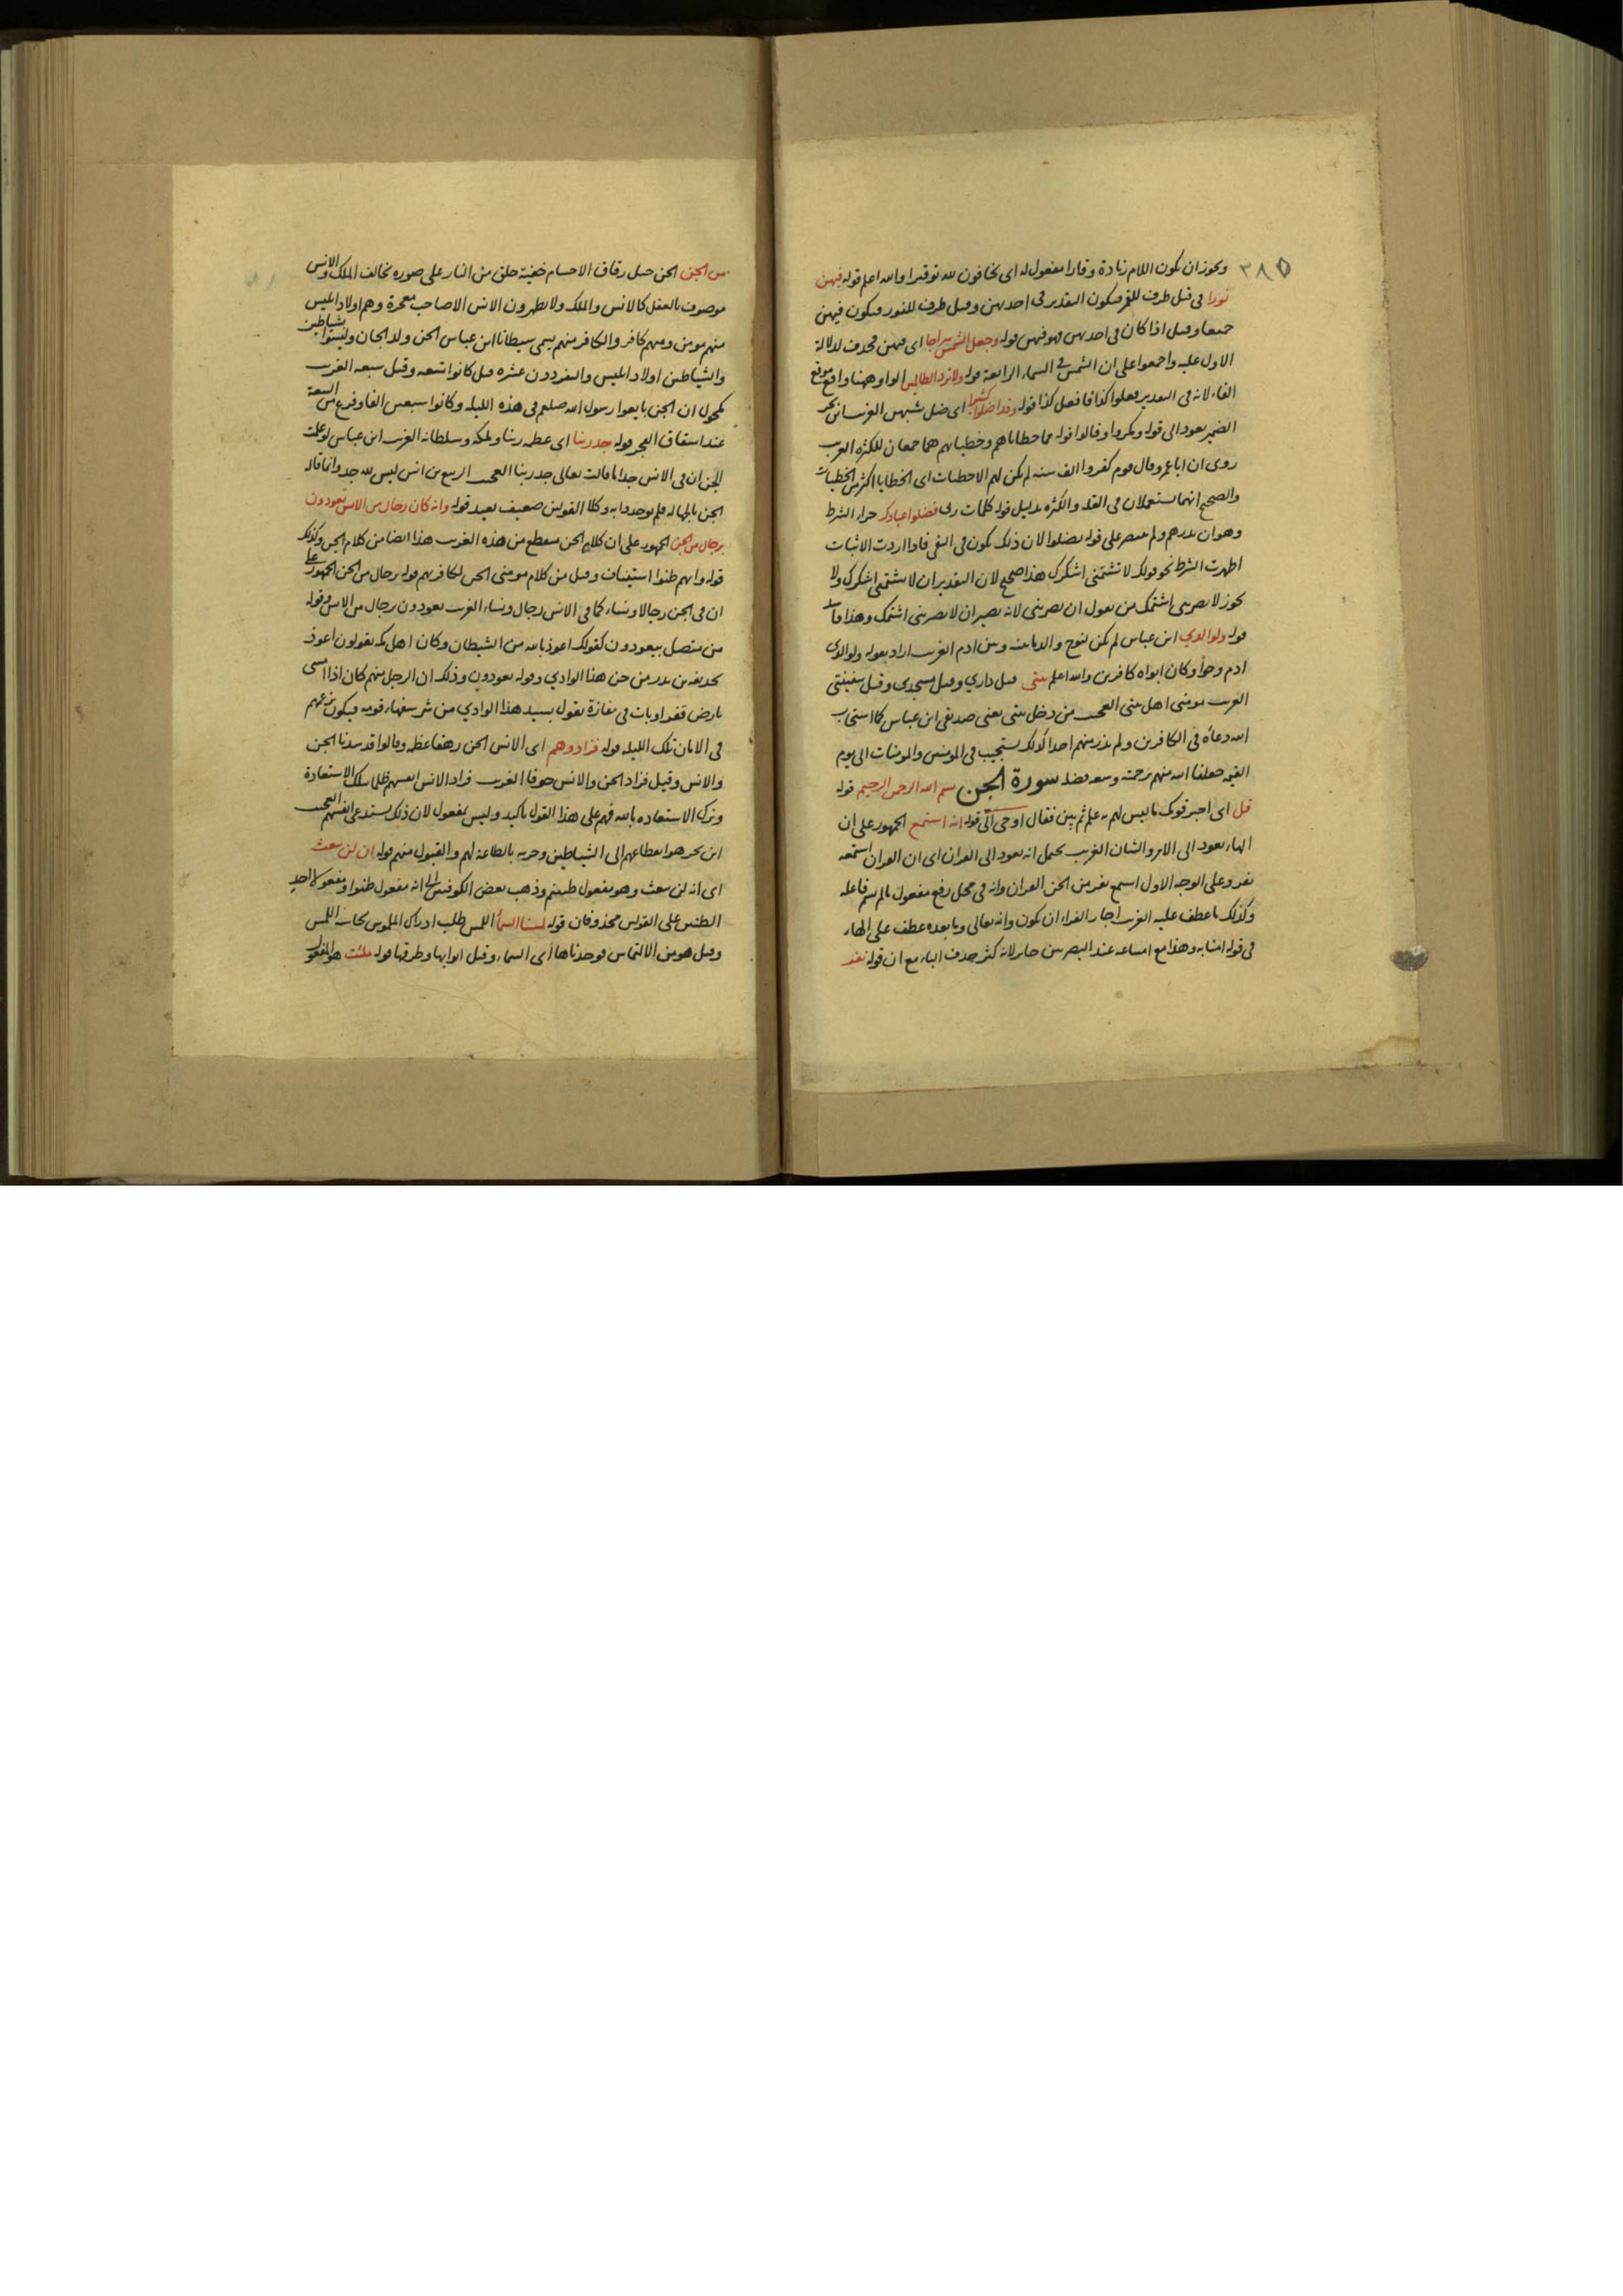 ٣٨٥
ويجوز ان يكون اللام زيادة وقارا مفعول له اى تخافون لله توقيرا والله اعلم قوله فيهن
نورا فى قيل ظرف للقمر فيكون التقدير فى احديهن وقيل ظرف للنور فيكون فيهن
جميعا وقيل اذا كان فى احديهن فهو فيهن قوله وجعل الشمس سراجا اى فيهن فحذف لدلالة
الاول عليه واجمعوا على ان الشمس فى السماء الرابعة قوله ولا تزد الظالمين الواو ههنا واقع موقع
الفاء لانه فى التقدير فعلوا كذا فافعل كذا قوله وقد اضلوا كثيرا اى ضل بسببهن الغريب ابن بحر
الضمير يعود الى قوله ومكروا وقالوا قوله مما خطاياهم وخطيئاتهم هما جمعان للكثرة الغريب
روى ان ابا عمرو قال قوم كفروا الف سنة لم يكن لهم الا خطيات اى الخطايا اكثر من الخطيات
والصحيح انهما يستعملان فى القلة والكثرة بدليل قوله كلمات ربى فضلوا عبادك جزاء الشرط
وهو ان تذرهم ولم يقتصر على قوله يضلوا لان ذلك يكون فى النفى فاذا اردت الاثبات
اظهرت الشرط نحو قولك لا تشتمنى اشكرك هذا صحيح لان التقدير ان لا تشتمنى اشكرك ولا
يجوز لا تضربنى اشتمك من تقول ان تضربنى لانه يصير ان لا تضربنى اشتمك وهذا فاسد
قوله ولوالدي ابن عباس لم يكن لنوح والد بينه وبين ادم الغريب اراد بقوله ولوالدى
ادم وحوا وكان ابواه كافرين والله اعلم بيتى قيل داري وقيل مسجدى وقيل سفينتى
الغريب مومنى اهل بيتى العجيب من دخل بيتى يعنى صديقى ابن عباس كما استجاب
الله دعاه فى الكافرين ولم يذر منهم احدا كذلك يستجيب فى المومنين والمومنات الى يوم
القيمة جعلنا الله منهم برحمته وسعة فضله سورة الجن بسم الله الرحمن الرحيم قوله
قل اى اخبر قومك ما ليس لهم به علم ثم بين فقال اوحى الى قوله انه استمع الجمهور على ان
الهاء يعود الى الامر والشان الغريب يحتمل انه يعود الى القران اى ان القران استمعه
نفر وعلى الوجه الاول استمع نفر من الجن القران وانه فى محل رفع مفعول ما لم يسم فاعله
وكذلك ما عطف عليه الغريب اجاز الفراء ان يكون وانه تعالى وما بعده عطف على الهاء
فى قوله امنا به وهذا مع امتناعه عند البصريين جايز لانه كثر حذف الباء مع ان قوله نفر
من الجن الجن جيل رقاق الاجسام خفية خلق من النار على صورة تخالف الملك والانس
موصوف بالعقل كالانس والملك ولا يظهرون للانس الا لصاحب معجزة وهم اولاد ابليس
منهم مومن ومنهم كافر والكافر منهم يسمى شيطانا ابن عباس الجن ولد الجان وليسوا بشياطين
والشياطين اولاد ابليس والنفر دون عشرة قيل كانوا تسعة وقيل سبعة الغريب
مكحول ان الجن بايعوا رسول الله صلعم فى هذه الليلة وكانوا سبعين الفا وفرغ من البيعة
عند انشقاق الفجر قوله جد ربنا اى عظمة ربنا وملكه وسلطانه الغريب ابن عباس لو علمت
الجن ان فى الانس جدا ما قالت تعالى جد ربنا العجيب الربيع بن انس ليس لله جد وانما قاله
الجن بالجهالة فلم يوخذوا به وكلا القولين ضعيف بعيد قوله وانه كان رجال من الانس يعوذون
برجال من الجن الجمهور على ان كلام الجن منقطع من هذه الغريب هذا ايضا من كلام الجن وكذلك
قوله وانهم ظنوا استيناف وقيل من كلام مومنى الجن لكافريهم قوله رجال من الجن الجمهور على
ان فى الجن رجالا ونساء كما فى الانس رجال ونساء الغريب يعوذون رجال من الانس وقوله
من متصل بيعوذون كقولك اعوذ بالله من الشيطان وكان اهل مكة يقولون اعوذ
بحذيفة بن بدر من جن هذا الوادي وقوله يعوذون وذلك ان الرجل منهم كان اذا امسى
بارض قفر او بات فى مفازة يقول بسيد هذا الوادي من شر سفهاء قومه فيكون بزعمهم
فى الامان تلك الليلة قوله فزادوهم اى الانس الجن رهقا عظمة وقالوا قد سدنا الجن
والانس وقيل فزاد الجن والانس خوفا الغريب فزاد الانس انفسهم ظلما بتلك الاستعاذة
وترك الاستعاذة بالله فهم على هذا القول تاكيد وليس بمفعول لان ذلك يستدعى انفسهم العجيب
ابن بحر هو انقطاعهم الى الشياطين وحزبه بالطاعة لهم والقبول منهم قوله ان لن يبعث
اى انه لن يبعث وهو مفعول ظننتم وذهب بعض الكوفيين الى انه مفعول ظنوا ومفعولا احد
الظنين على القولين محذوفان قوله لمسنا السما اللمس طلب ادراك الملموس بحاسة اللمس
وقيل هو من الالتماس فوجدناها اى السماء وقيل ابوابها وطرقها قوله ملئت هو المفعول